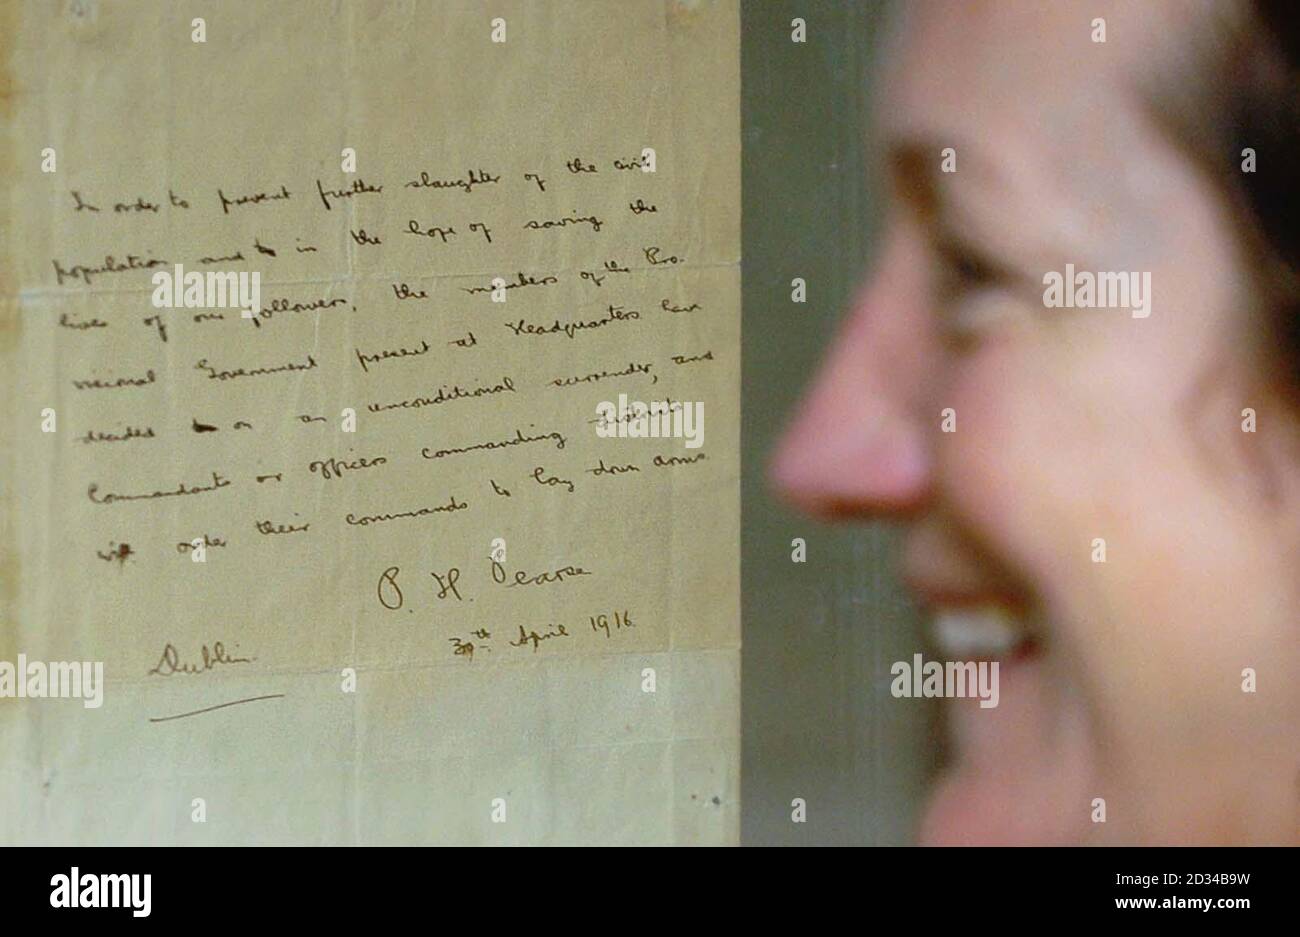 In order to prevent further slaughter of the civil
population and in the hope of saving the
lives of our followers, the members of the Pro-
visional Government present at Headquarters have
decided on an unconditional surrender, and
Commandants or officers commanding districts
will order their commands to lay down arms.
P. H. Pearse
30th April 1916
Dublin.
alamy
Image ID: 2D34B9W
www.alamy.com